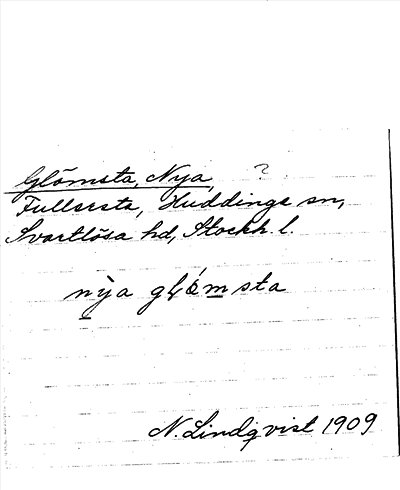 Glömsta, Nya ?
Fullersta, Huddinge sn,
Svartlösa hd, Stockh. l.
nỳa glǿmsta
N. Lindqvist 1909